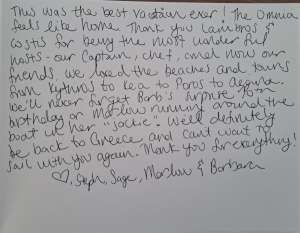 This was the best vacation ever! The Omnia
feels like home. Thank you Lambros &
Costis for being the most wonderful
hosts - our Captain, chef, and now our
friends. We loved the beaches and tours
from Kythnos to Kea to Poros to Aegina.
We'll never forget Barb's surprise 75th
birthday or Marlow running around the
boat in her "jackie". We'll definitely
be back to Greece and can't wait to
sail with you again. Thank you for everything!
♡, Steph, Sage, Marlow & Barbara